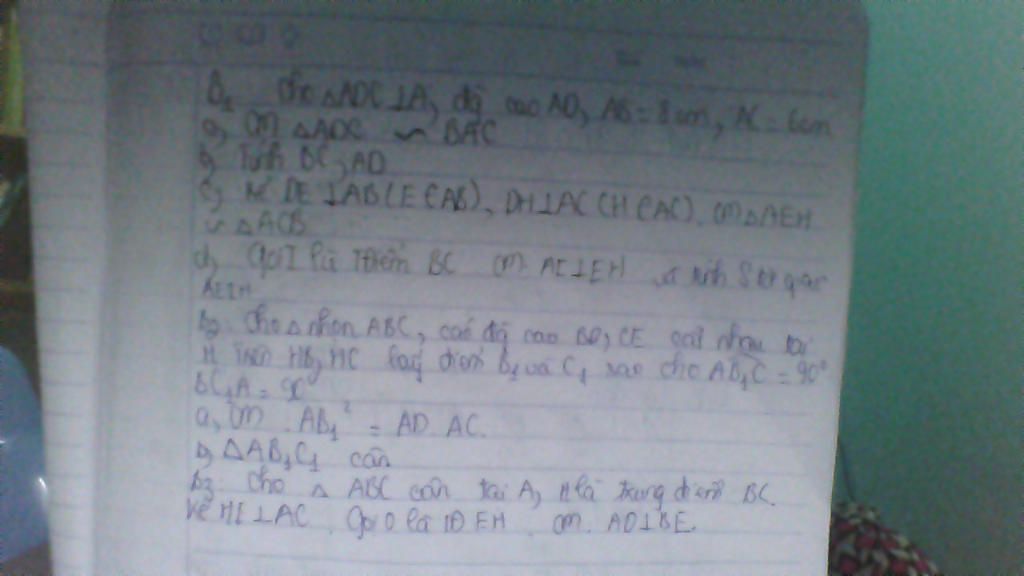 B1 Cho △ABC ⊥ A, đg cao AD, AB = 8cm, AC = 6cm
a, CM △ADC ∽ BAC
b, Tính BC, AD
c, Kẻ DE ⊥ AB (E ∈ AB), DH ⊥ AC (H ∈ AC). CM △AEH
∽ △ACB
d, Gọi I là Tđiểm BC CM. AI ⊥ EH và tính S tứ giác
AEIH
b2. Cho △ nhọn ABC, các đg cao BD, CE cắt nhau tại
H Trên HB, HC lấy điểm B1 và C1 sao cho AB1C = 90°
BC1A = 90
a, CM . AB1² = AD. AC.
b, △AB1C1 cân
b3. Cho △ ABC cân tại A, H là trung điểm BC.
Vẽ HE ⊥ AC. Gọi O là TĐ EH. CM. AO ⊥ BE.